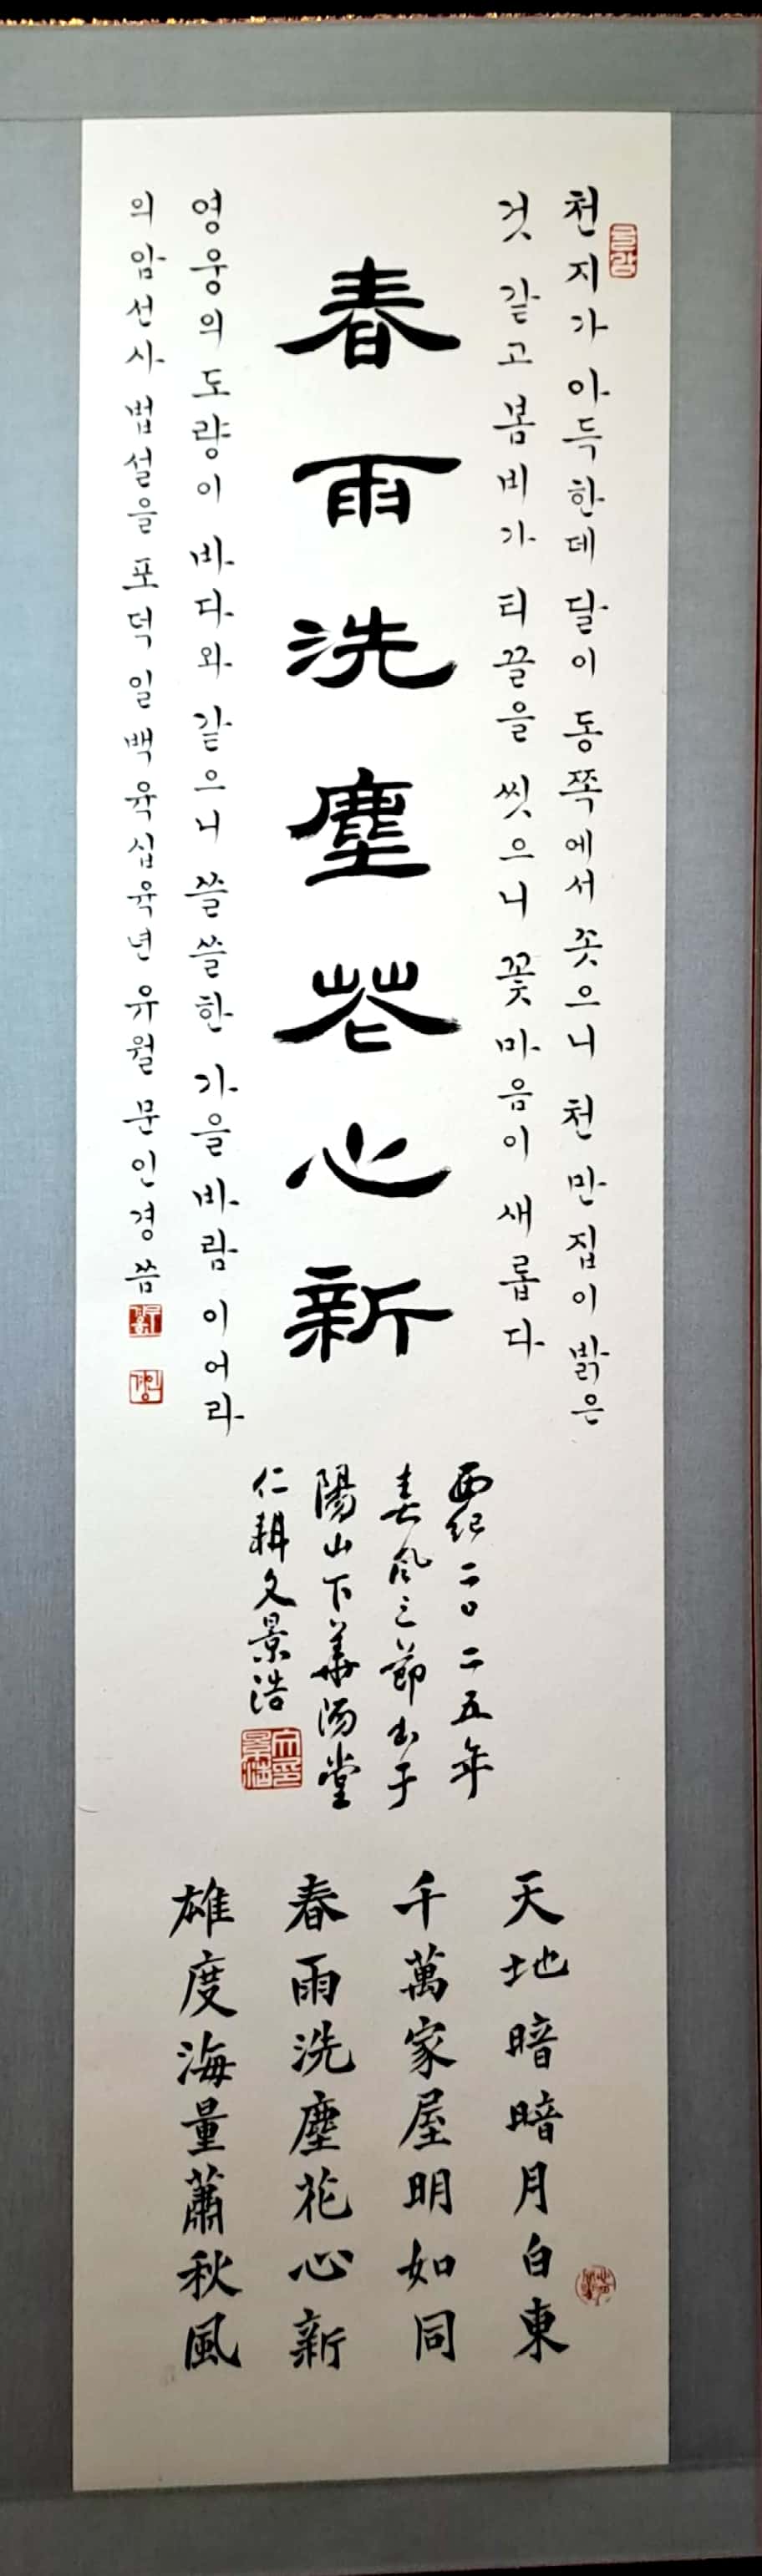 천지가 아득한데 달이 동쪽에서 솟으니 천만 집이 밝은
것 같고 봄비가 티끌을 씻으니 꽃 마음이 새롭다
春雨洗塵花心新
영웅의 도량이 바다와 같으니 쓸쓸한 가을 바람이어라
의암선사 법설을 포덕 일백육십육년 유월 문인경 씀
西紀二〇二五年
春風之節書于
陽山下華陽堂
仁耕文景浩
天地暗暗月白東
千萬家屋明如同
春雨洗塵花心新
雄度海量蕭秋風